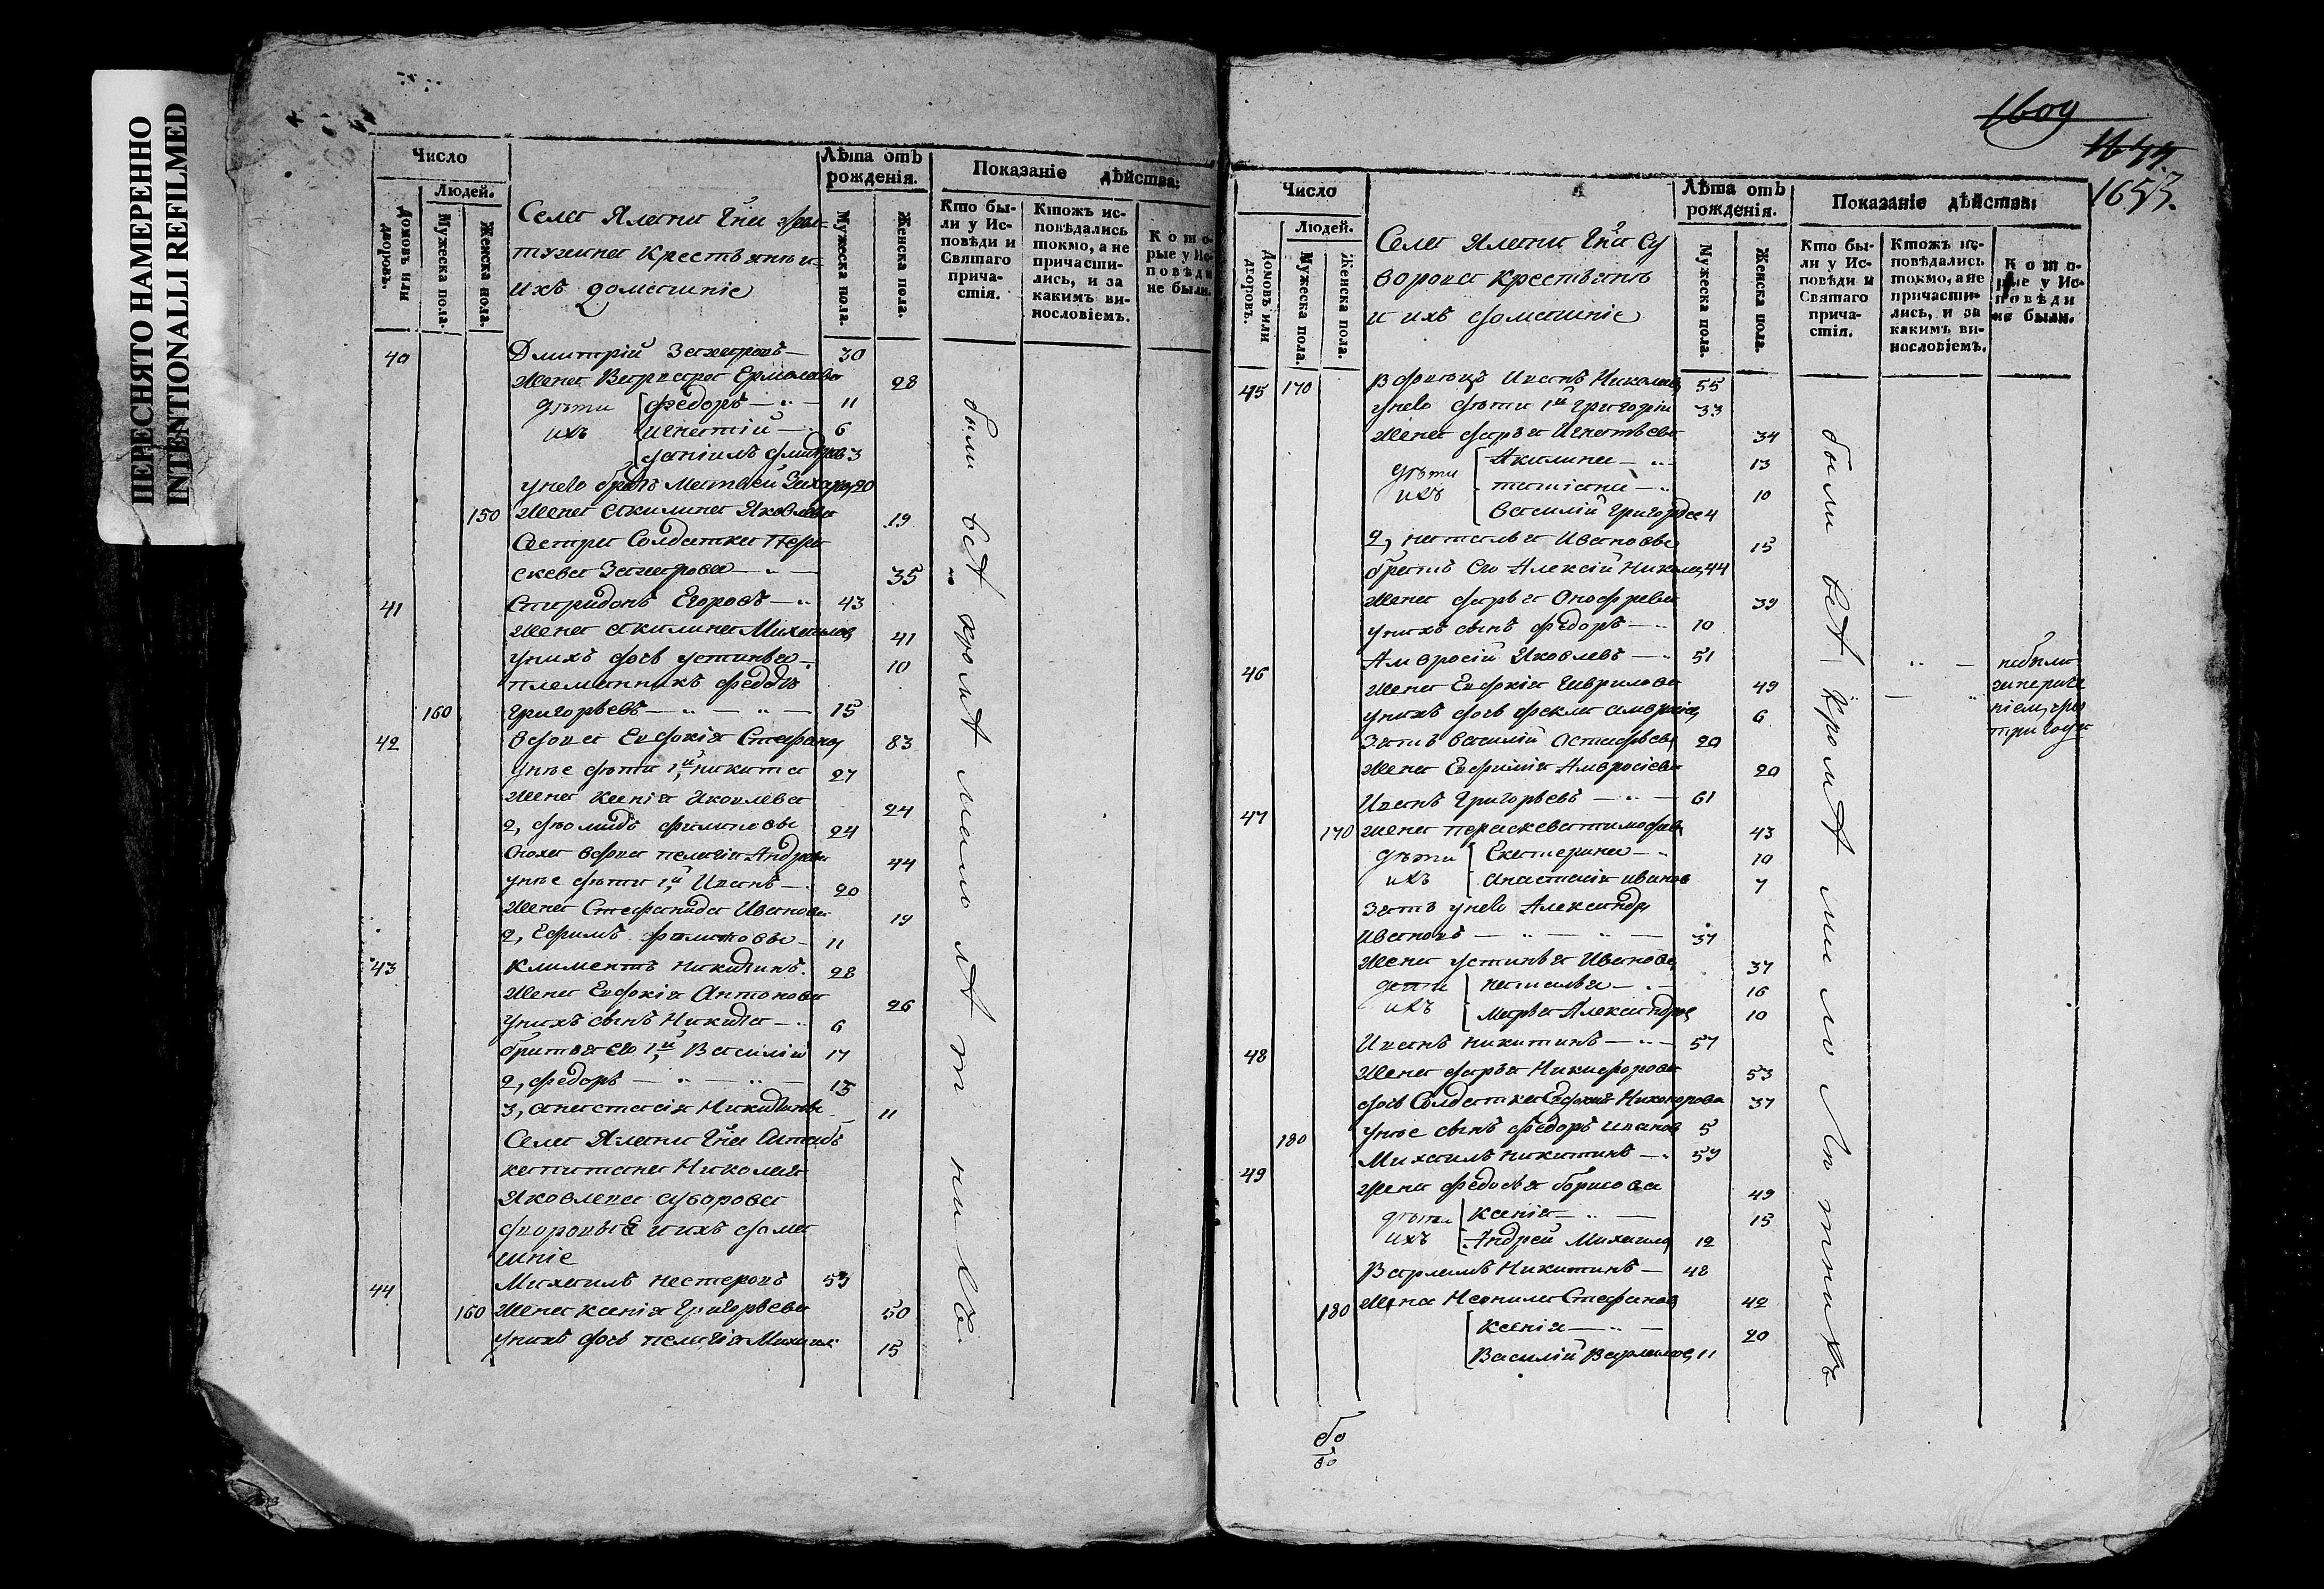 ПЕРЕСНЯТО НАМЕРЕННО
INTENTIONALLI REFILMED
Число
Людей.
домовъ или дворовъ.
Мужеска пола.
Женска пола.
Лѣта отъ рожденія.
Мужеска пола.
Женска пола.
Показаніе дѣйства:
Кто были у Исповѣди и Святаго причастія.
Ктожъ исповѣдались токмо, а не причастились, и за какимъ винословіемъ.
Которые у Исповѣди не были.
Села Ялепи Гна
крестьяне и
ихъ домашніе
40 Дмитрій Захаровъ 30
жена Варвара Ермолаева 28
дѣти Федоръ 11
ихъ Игнатій 6
Даніилъ 3
у него братъ Матвей Захаров 20
150 жена Акилина Яковлева 19
Сестра Солдатка Пара
скева Захарова 35
41 Спиридонъ Егоровъ 43
жена Акилина Михаилов 41
у нихъ дочь Устинья 10
племянникъ Федоръ
160 Григорьевъ 15
42 вдова Евдокія Стефанов 83
у нее дѣти 1й Никита 27
жена Ксенія Яковлева 24
2, Филиповы 24
вдова Пелагія Андреева 44
у нее дѣти 1й Иванъ 20
жена Стефанида Иванова 19
2, Ефимъ Филиповы 11
43 Климентъ Никитинъ 28
жена Евдокія Антонова 26
у нихъ сынъ Никита 6
братья его 1й Василій 17
2, Федоръ 13
3, Анастасія Никитины 11
Села Ялепи Гна Штабъ
капитана Николая
Яковлева Суворова
дворовые и ихъ дома
шніе
44 Михаилъ Нестеровъ 57
160 жена Ксенія Григорьева 50
у нихъ дочь Пелагія Михаил 15
были всѣ кромѣ малолѣтнихъ.
1609
1653.
Число
Людей.
Домовъ или дворовъ.
Мужеска пола.
Женска пола.
Лѣта отъ рожденія.
Мужеска пола.
Женска пола.
Показаніе дѣйства:
Кто были у Исповѣди и Святаго причастія.
Ктожъ исповѣдались токмо, а не причастились, и за какимъ винословіемъ.
Которые у Исповѣди не были.
Села Ялепи Гна Су
ворова крестьянъ
и ихъ домашніе
45 170 Вдовецъ Иванъ Николаев 55
у него дѣти 1й Григорій 33
жена Дарья Игнатьева 34
дѣти Акилина 13
ихъ Татіана 10
Василій Григорьев 4
2, Наталья Ивановы 15
братъ его Алексій Никола 44
жена Дарья Онофрева 39
у нихъ сынъ Федоръ 10
46 Амвросій Яковлевъ 51
жена Евдокія Гаврилова 49
у нихъ дочь Фекла Амвросіев 6
зять Василій Остафьев 20
жена Евфимія Амвросіева 20
небыли
три года
47 Иванъ Григорьевъ 61
170 жена Параскева Тимофеев 43
дѣти Екатерина 10
ихъ Анастасія Иванов 7
зять у него Александр
Ивановъ 37
жена Устинья Иванова 37
дѣти Наталья 16
ихъ Марья Александров 10
48 Иванъ Никитинъ 57
жена Дарья Никифорова 53
дочь Солдатка Евдокія Никанорова 37
180 у нее сынъ Федоръ Иванов 5
49 Михаилъ Никитинъ 59
жена Федосья Борисова 49
дѣти Ксенія 15
ихъ Андрей Михаилов 12
Варламъ Никитинъ 48
180 жена Неонила Стефанов 42
Ксенія 20
Василій Варламов 11
были всѣ кромѣ малолѣтнихъ